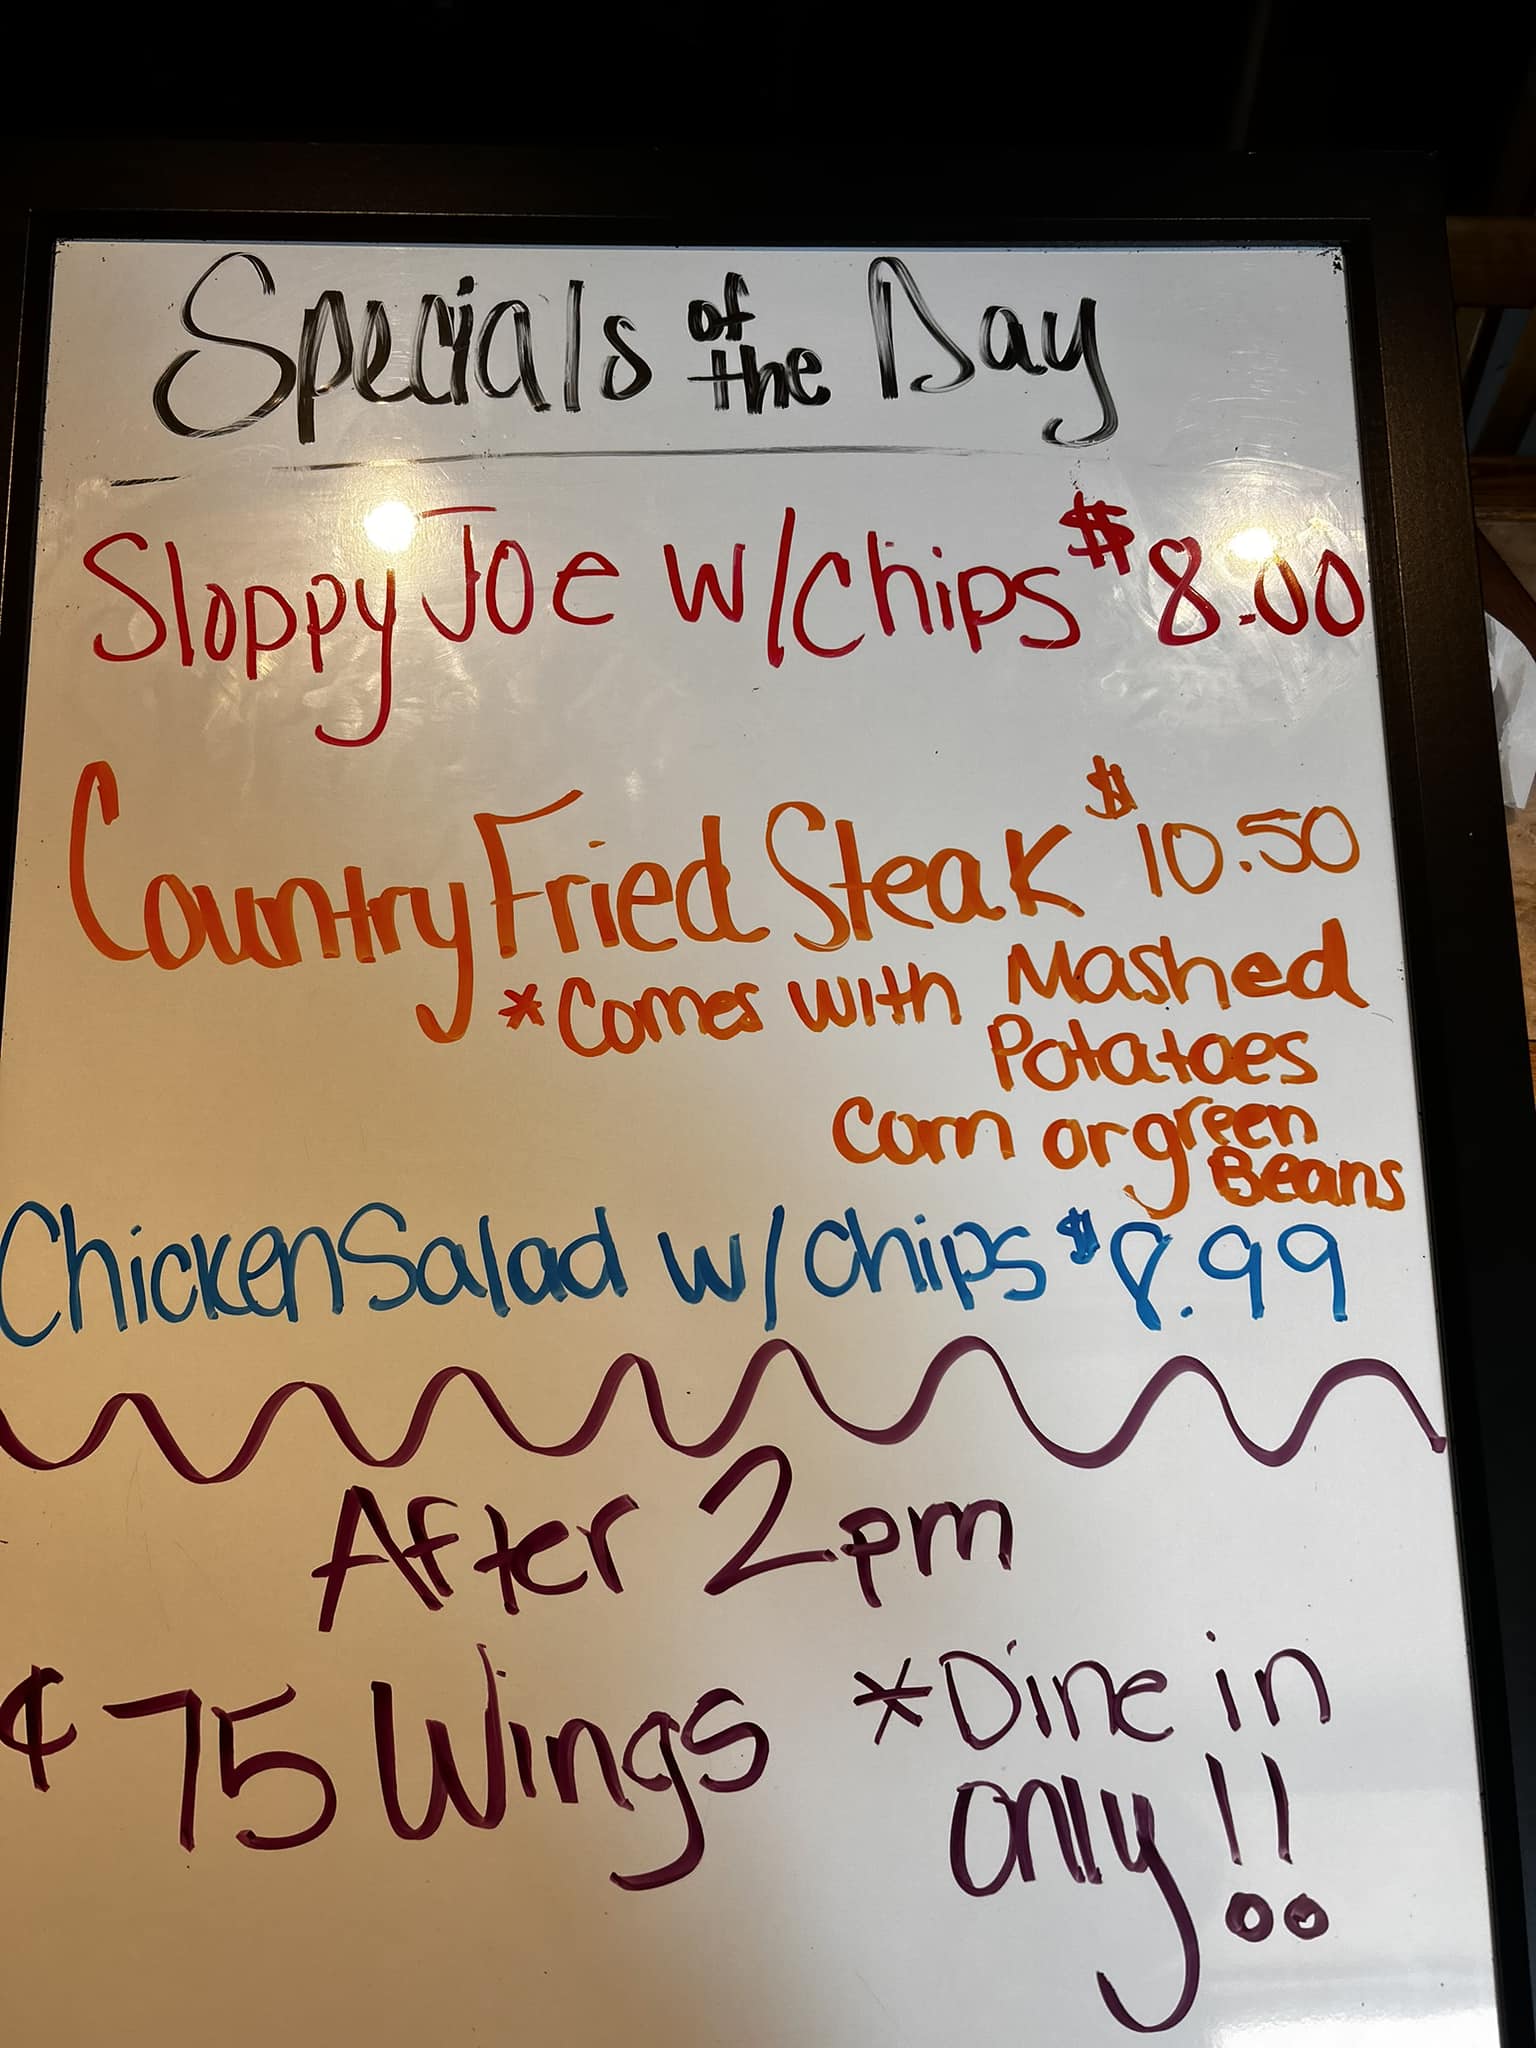 Specials of the Day
Sloppy Joe w/chips $8.00
Country Fried Steak $10.50
*Comes with Mashed
Potatoes
Corn or green
Beans
Chicken Salad w/chips $8.99
After 2pm
¢75 Wings *Dine in
only!!